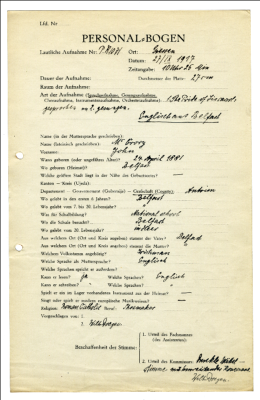 Lfd. Nr
PERSONAL-BOGEN
Lautliche Aufnahme Nr.: Ort: Giessen
Datum: 27/IX 1917
Zeitangabe: 10 Uhr 25 Min
Dauer der Aufnahme: Durchmesser der Platte: 27 cm
Raum der Aufnahme:
Art der Aufnahme (Sprechaufnahme, Gesangsaufnahme,
Choraufnahme, Instrumentenaufnahme, Orchesteraufnahme):
gesprochen v.
Englisch aus Belfast
Name (in der Muttersprache geschrieben):
Name (lateinisch geschrieben): Mc Crory
Vorname: John
Wann geboren (oder ungefähres Alter)? 24 April 1881
Wo geboren (Heimat)? Belfast
Welche größere Stadt liegt in der Nähe des Geburtsortes?
Kanton — Kreis (Ujedz):
Department — Gouvernement (Gubernija) — Grafschaft (County): Antrim
Wo gelebt in den ersten 6 Jahren? Belfast
Wo gelebt vom 7. bis 20. Lebensjahr?
Was für Schulbildung? National school
Wo die Schule besucht? Belfast
Wo gelebt vom 20. Lebensjahr?
Aus welchem Ort (Ort und Kreis angeben) stammt der Vater? Belfast
Aus welchem Ort (Ort und Kreis angeben) stammt die Mutter?
Welchem Volksstamm angehörig? Irishman
Welche Sprache als Muttersprache? Englisch
Welche Sprachen spricht er außerdem?
Kann er lesen? ja Welche Sprachen? Englisch
Kann er schreiben? Welche Sprachen?
Spielt er ein im Lager vorhandenes Instrument aus der Heimat?
Singt oder spielt er modern europäische Musikweisen?
Religion: Roman Catholic Beruf:
Vorgeschlagen von: 1.
2.
Beschaffenheit der Stimme:
1. Urteil des Fachmannes
(des Assistenten):
2. Urteil des Kommissars: